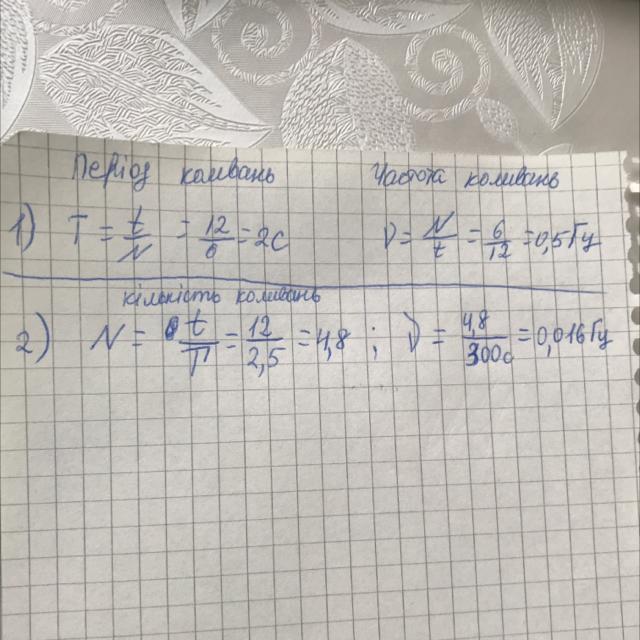 Період коливань Частота коливань
1) T = t/N = 12/6 = 2с ν = N/t = 6/12 = 0,5 Гц
кількість коливань
2) N = t/T = 12/2,5 = 4,8 ; ν = 4,8/300с = 0,016 Гц